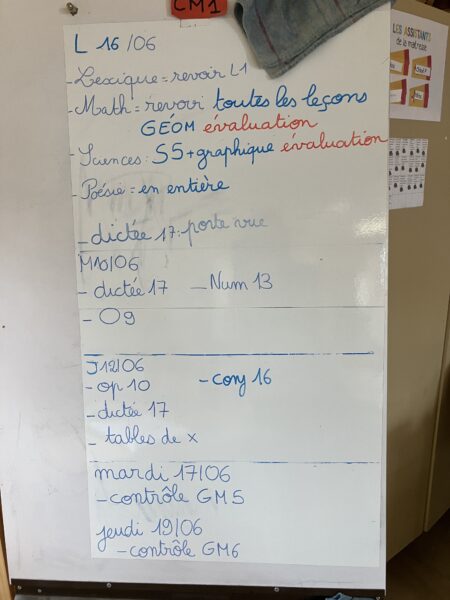 CM1
L 16/06
- Lexique = revoir L1
- Math = revoir toutes les leçons
GÉOM évaluation
- Sciences : S5 + graphique évaluation
- Poésie = en entière
- dictée 17 : porte vue
M10/06
- dictée 17 - Num 13
- O9
J12/06
- op 10 - conj 16
- dictée 17
- tables de x
mardi 17/06
- contrôle GM5
jeudi 19/06
- contrôle GM6
LES ASSISTANTS
de la maîtresse